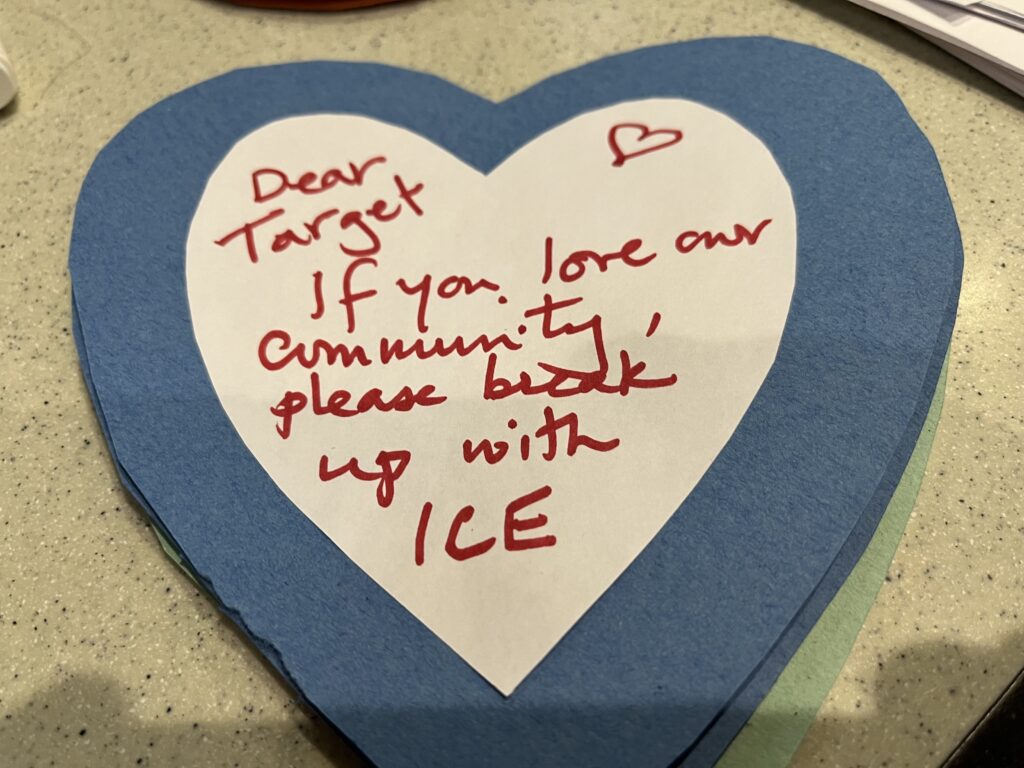 Dear
Target
If you love our
community,
please break
up with
ICE